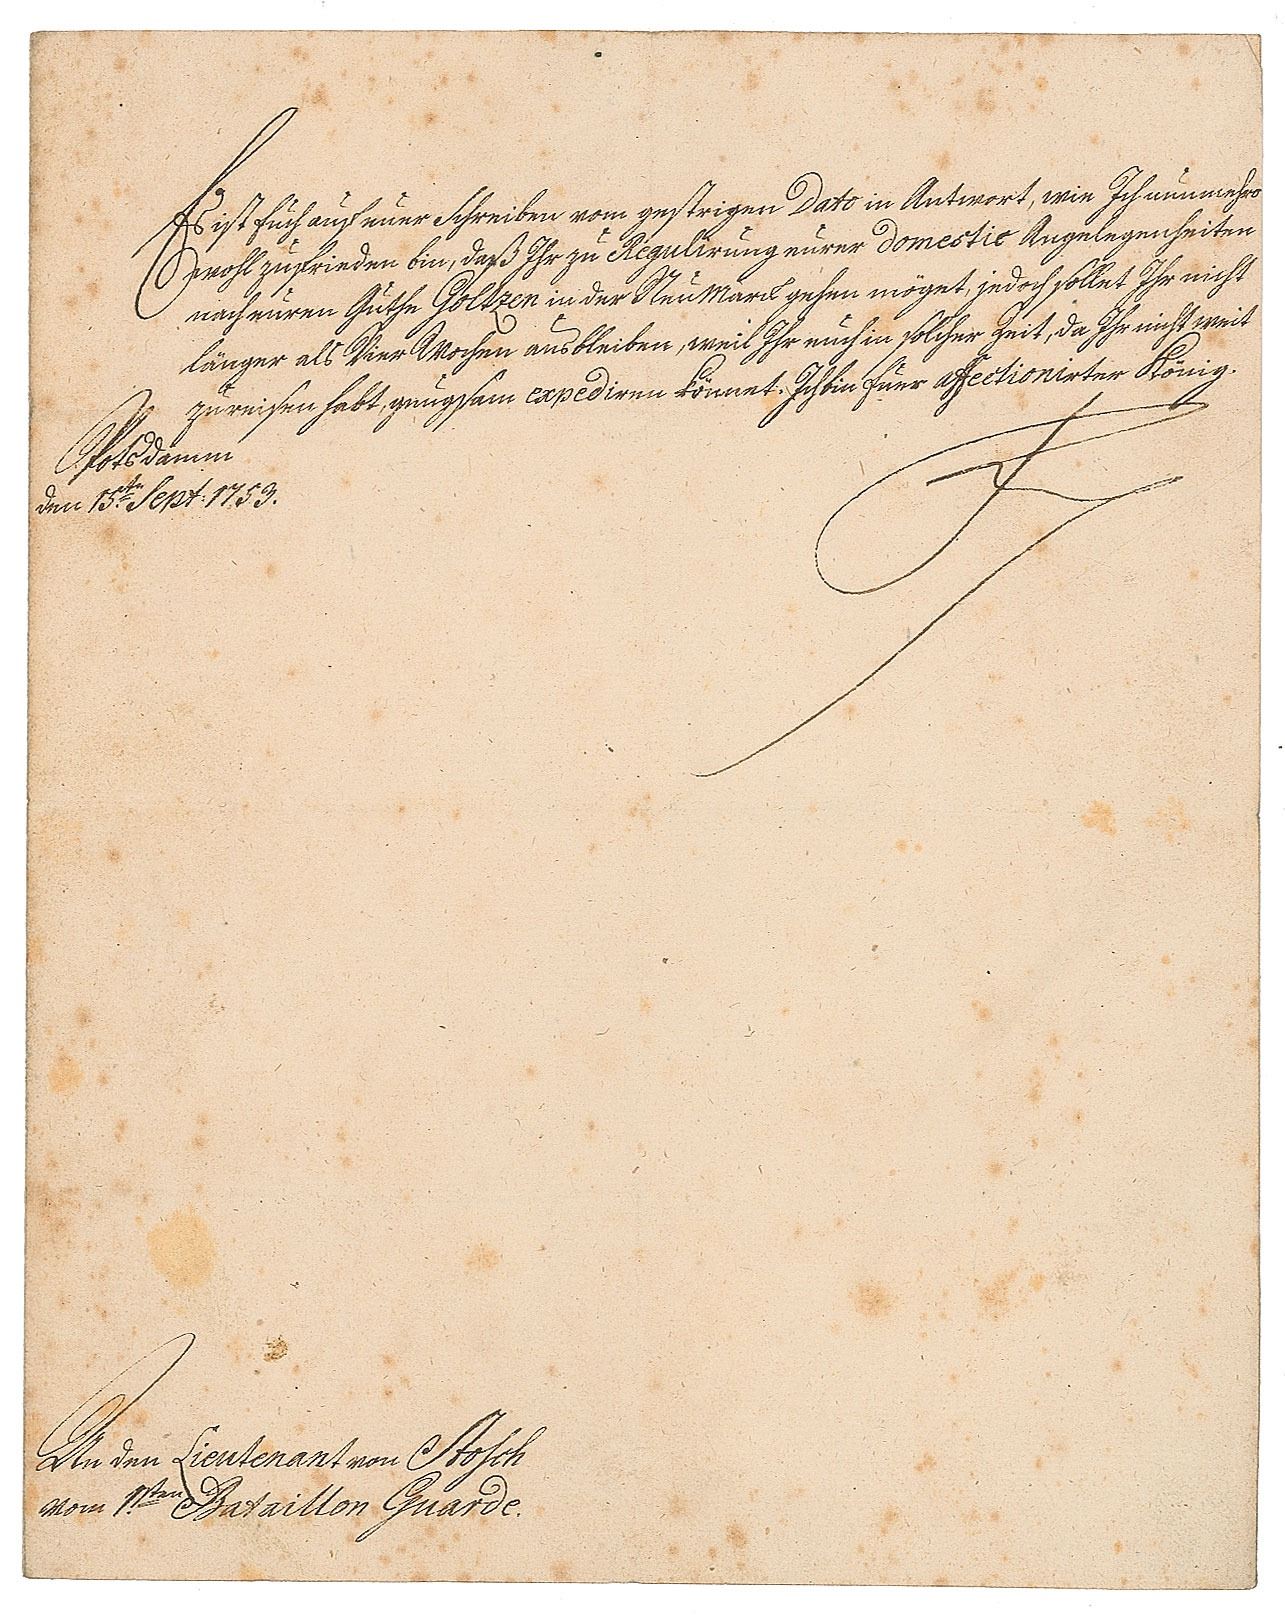 Es ist Euch auf euer Schreiben vom gestrigen Dato in Antwort, wie Ich nunmehro
wohl zufrieden bin, daß Ihr zu Regulirung eurer Domestic Angelegenheiten
nach euren Guthe Goltzen in der NeuMarck gehen möget, jedoch sollet Ihr nicht
länger als Vier Wochen ausbleiben, weil Ihr euch in solcher Zeit, da Ihr nicht weit
zu reisen habt, gnugsam expediren könnet. Ich bin Euer affectionirter König.
Potsdamm
den 15ten Sept: 1753.
An den Lieutenant von Stosch
vom 1sten Bataillon Guarde.